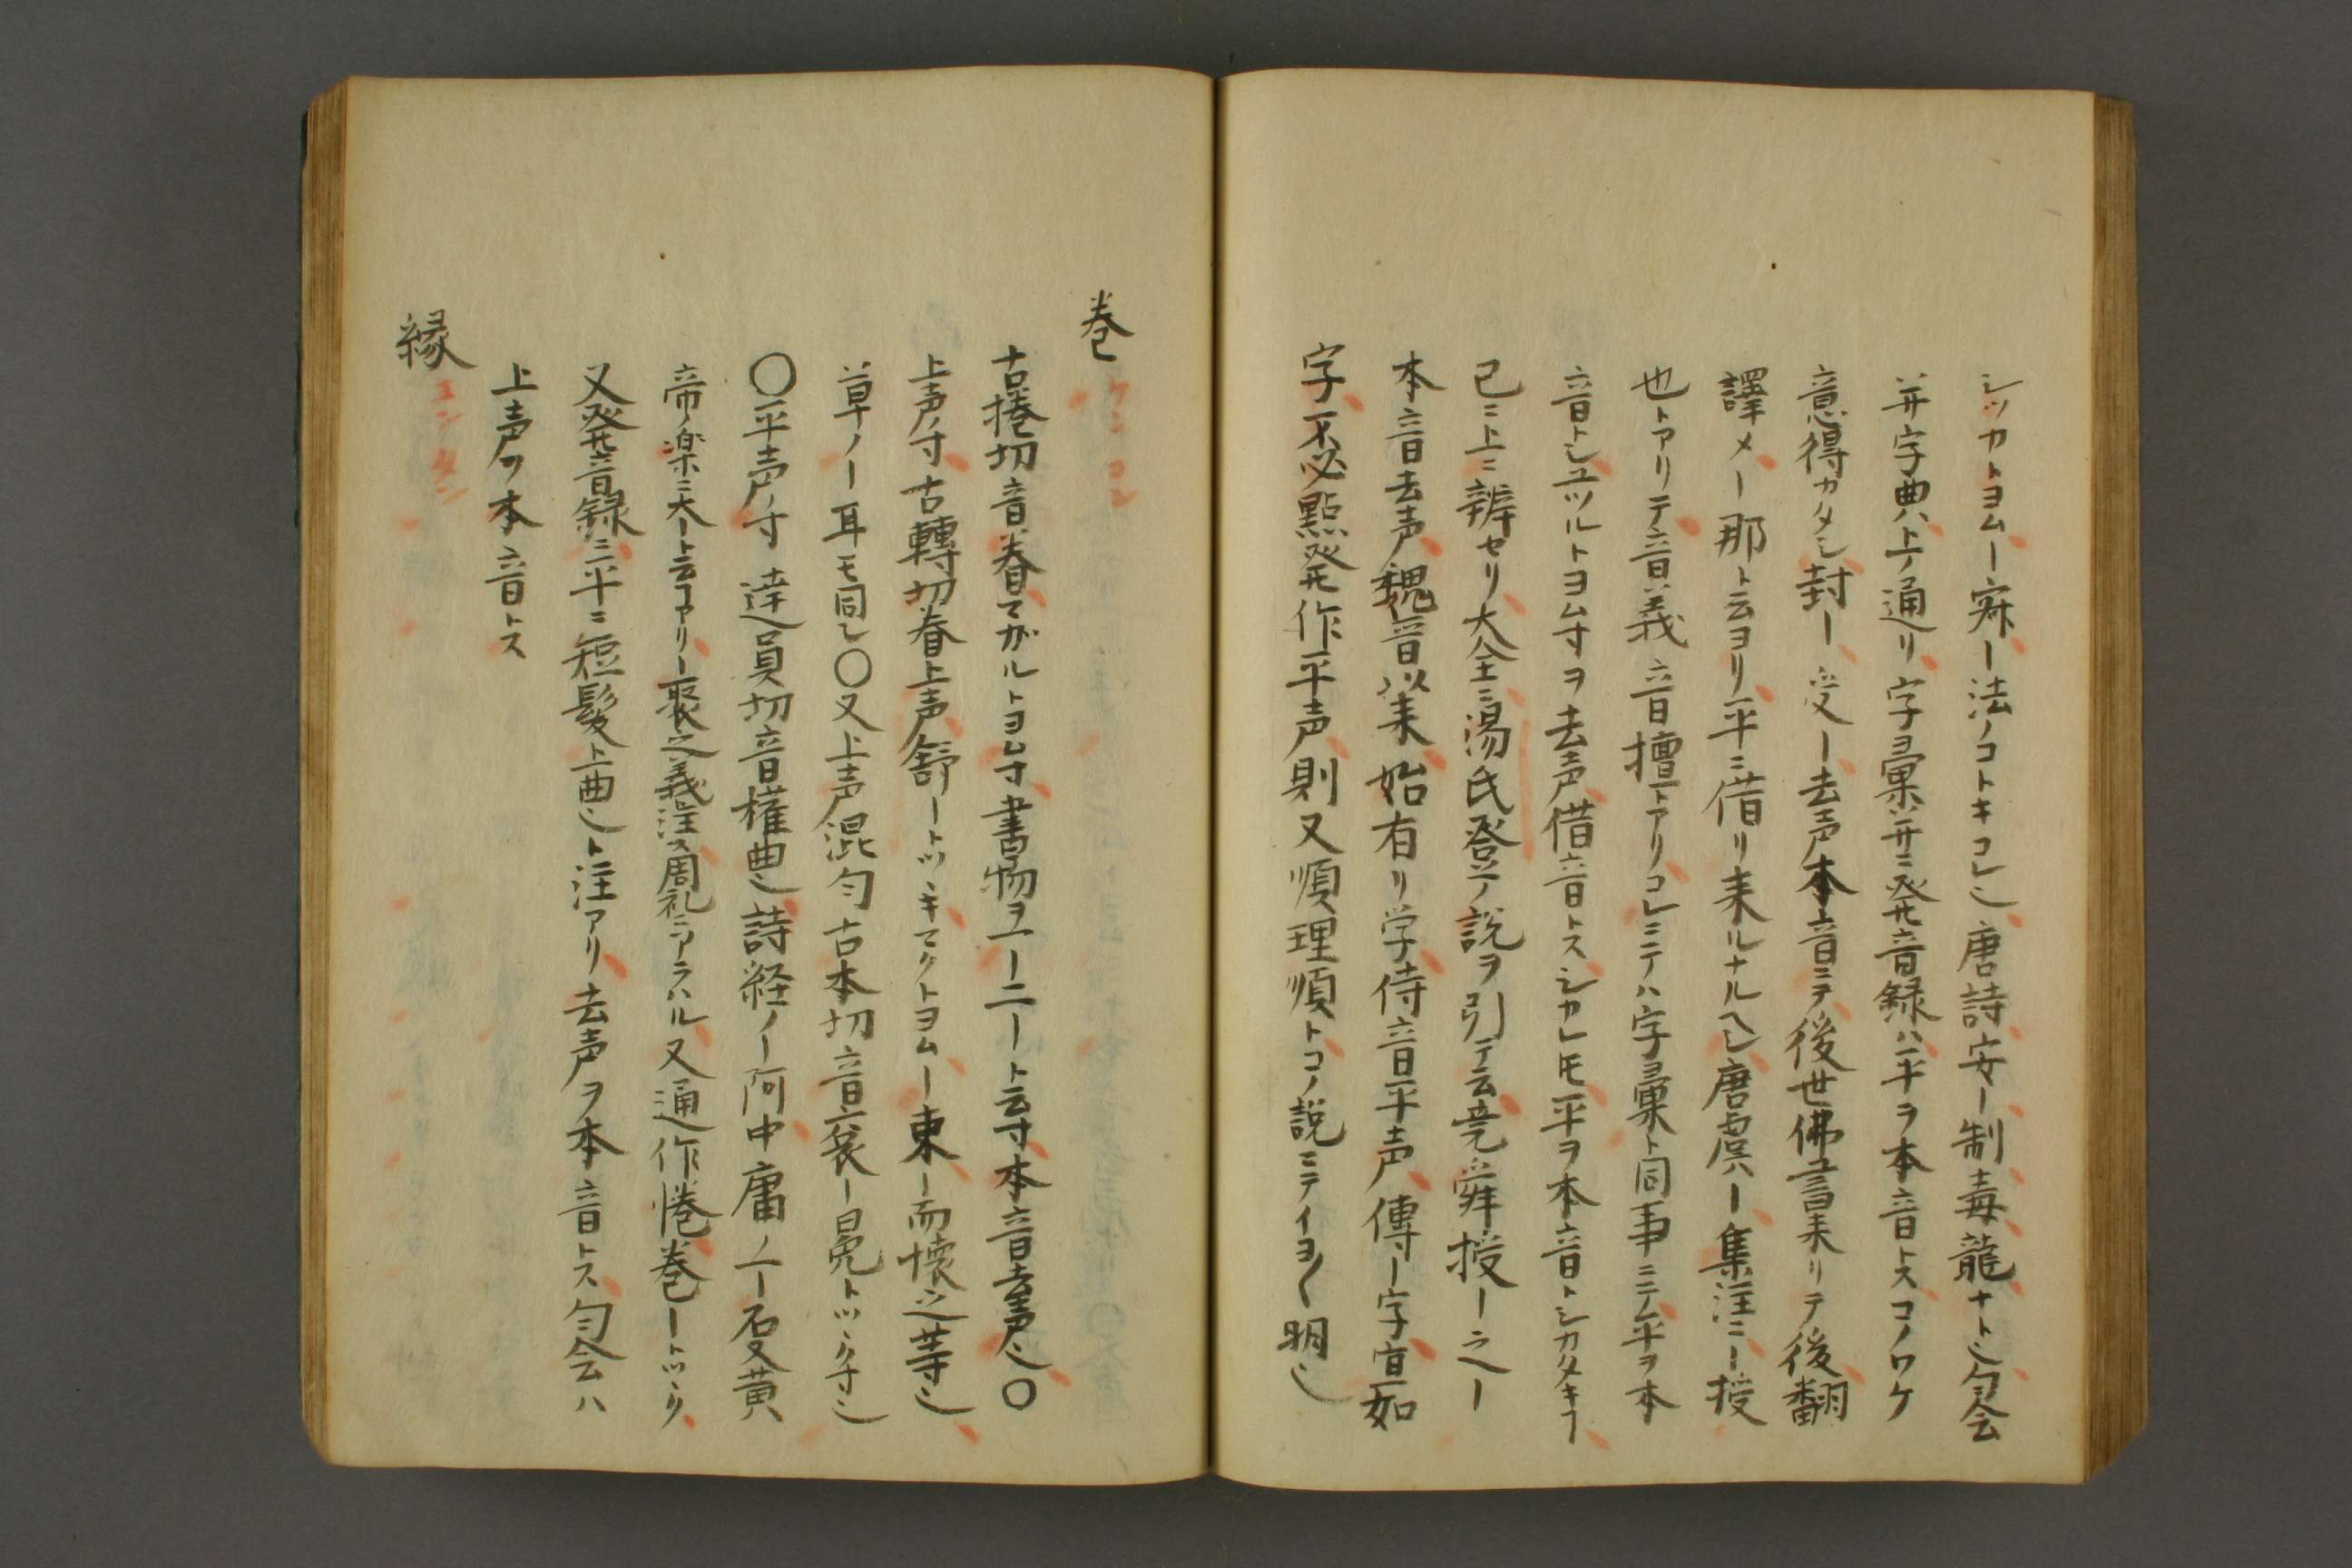 シツカトヨムー寂ー法ノコトキコレ也唐詩安ー制毒龍ナト也匀会
并字典ハ上ノ通リ字彙并ニ発音録ハ平ヲ本音トスコノワケ
意得カタシ封ー受ー去声本音ニテ後世佛書来リテ後翻
譯メー那ト云ヨリ平ニ借リ来ルナルヘシ唐虞ー集注ニー授
也トアリテ音義音擅トアリコレニテハ字彙ト同事ニテ平ヲ本
音トシユツルトヨム寸ヲ去声借音トスシカレ𪜈平ヲ本音トシカタキヿ
已ニ上ニ辨セリ大全ニ湯氏登カ説ヲ引テ云尭舜授ー之ー
本音去声魏晋以来始有リ学侍音平声傳ー字宜如
字不必點発作平声則又順理順トコノ説ニテイヨ〱明也
巻 ケン コン
古捲切音眷マガルトヨム寸書物ヲ一ー二ート云寸本音去声也〇
上声ノ寸古轉切眷上声舒ートツヽキマクトヨムー束ー而懐之等也
草ノー耳モ同シ〇又上声混匀古本切音袞ー冕トツヽク寸也
〇平声ノ寸逵員切音權曲也詩経ノー阿中庸ノ一ー石又黄
帝ノ楽ニ大ート云アリー聚之義注ス周礼ニアラハル又通作惓巻ートツヽク
又発音録ニ平ニ短髪上曲也ト注アリ去声ヲ本音トス匀会ハ
上声ヲ本音トス
縁 エン タン